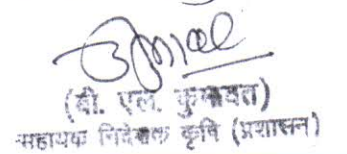 (बी. एल. कुमावत)
सहायक निदेशक कृषि (प्रशासन)